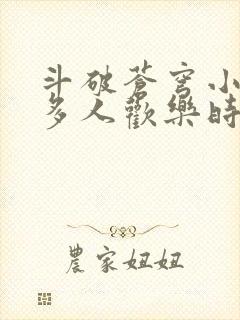 斗破苍穹小
多人歡樂時
農家妞妞